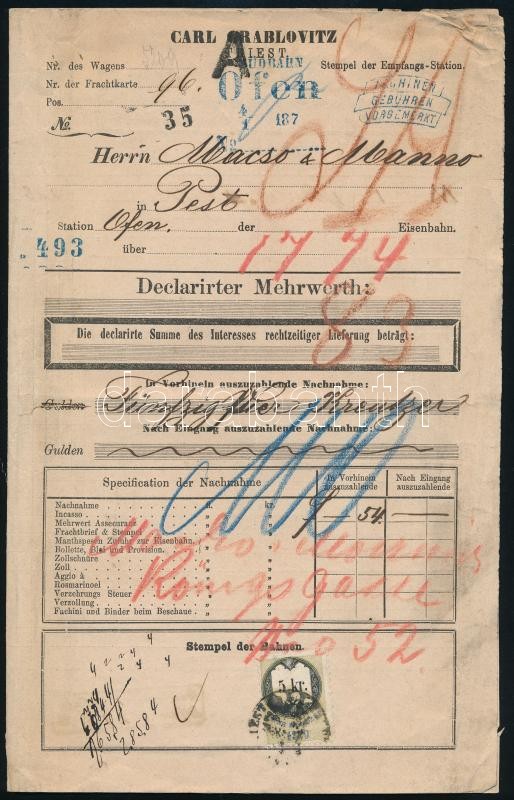 CARL GRABLOVITZ
TRIEST.
Nr. des Wagens
Stempel der Empfangs-Station.
SÜDBAHN
A
Nr. der Frachtkarte 96.
Ofen
Pos.
187
GEBÜHREN
VORGEMERKT
№
35
Herrn Macso & Manno
in Pest
Station Ofen. der Eisenbahn.
493
über
1774
Declarirter Mehrwerth:
83
Die declarirte Summe des Interesses rechtzeitiger Lieferung beträgt:
In Vorhinein auszuzahlende Nachnahme:
Gulden Fünfzig Vier Kreutzer
Nach Eingang auszuzahlende Nachnahme:
Gulden
darabanth
Specification der Nachnahme
In Vorhinein auszuzahlende
Nach Eingang auszuzahlende
Nachnahme fl. kr.
54
Incasso
Mehrwert Assecuranz
Frachtbrief & Stempel
Manthspesen Zufuhr zur Eisenbahn
Bollette, Blei und Provision.
Zollschnüre
Zoll
Aggio à
Rosmarinoel
Verzehrungs Steuer
Verzollung
Fachini und Binder beim Beschaue
Königsgasse
No 52.
Stempel der Bahnen.
5 kr.
28584